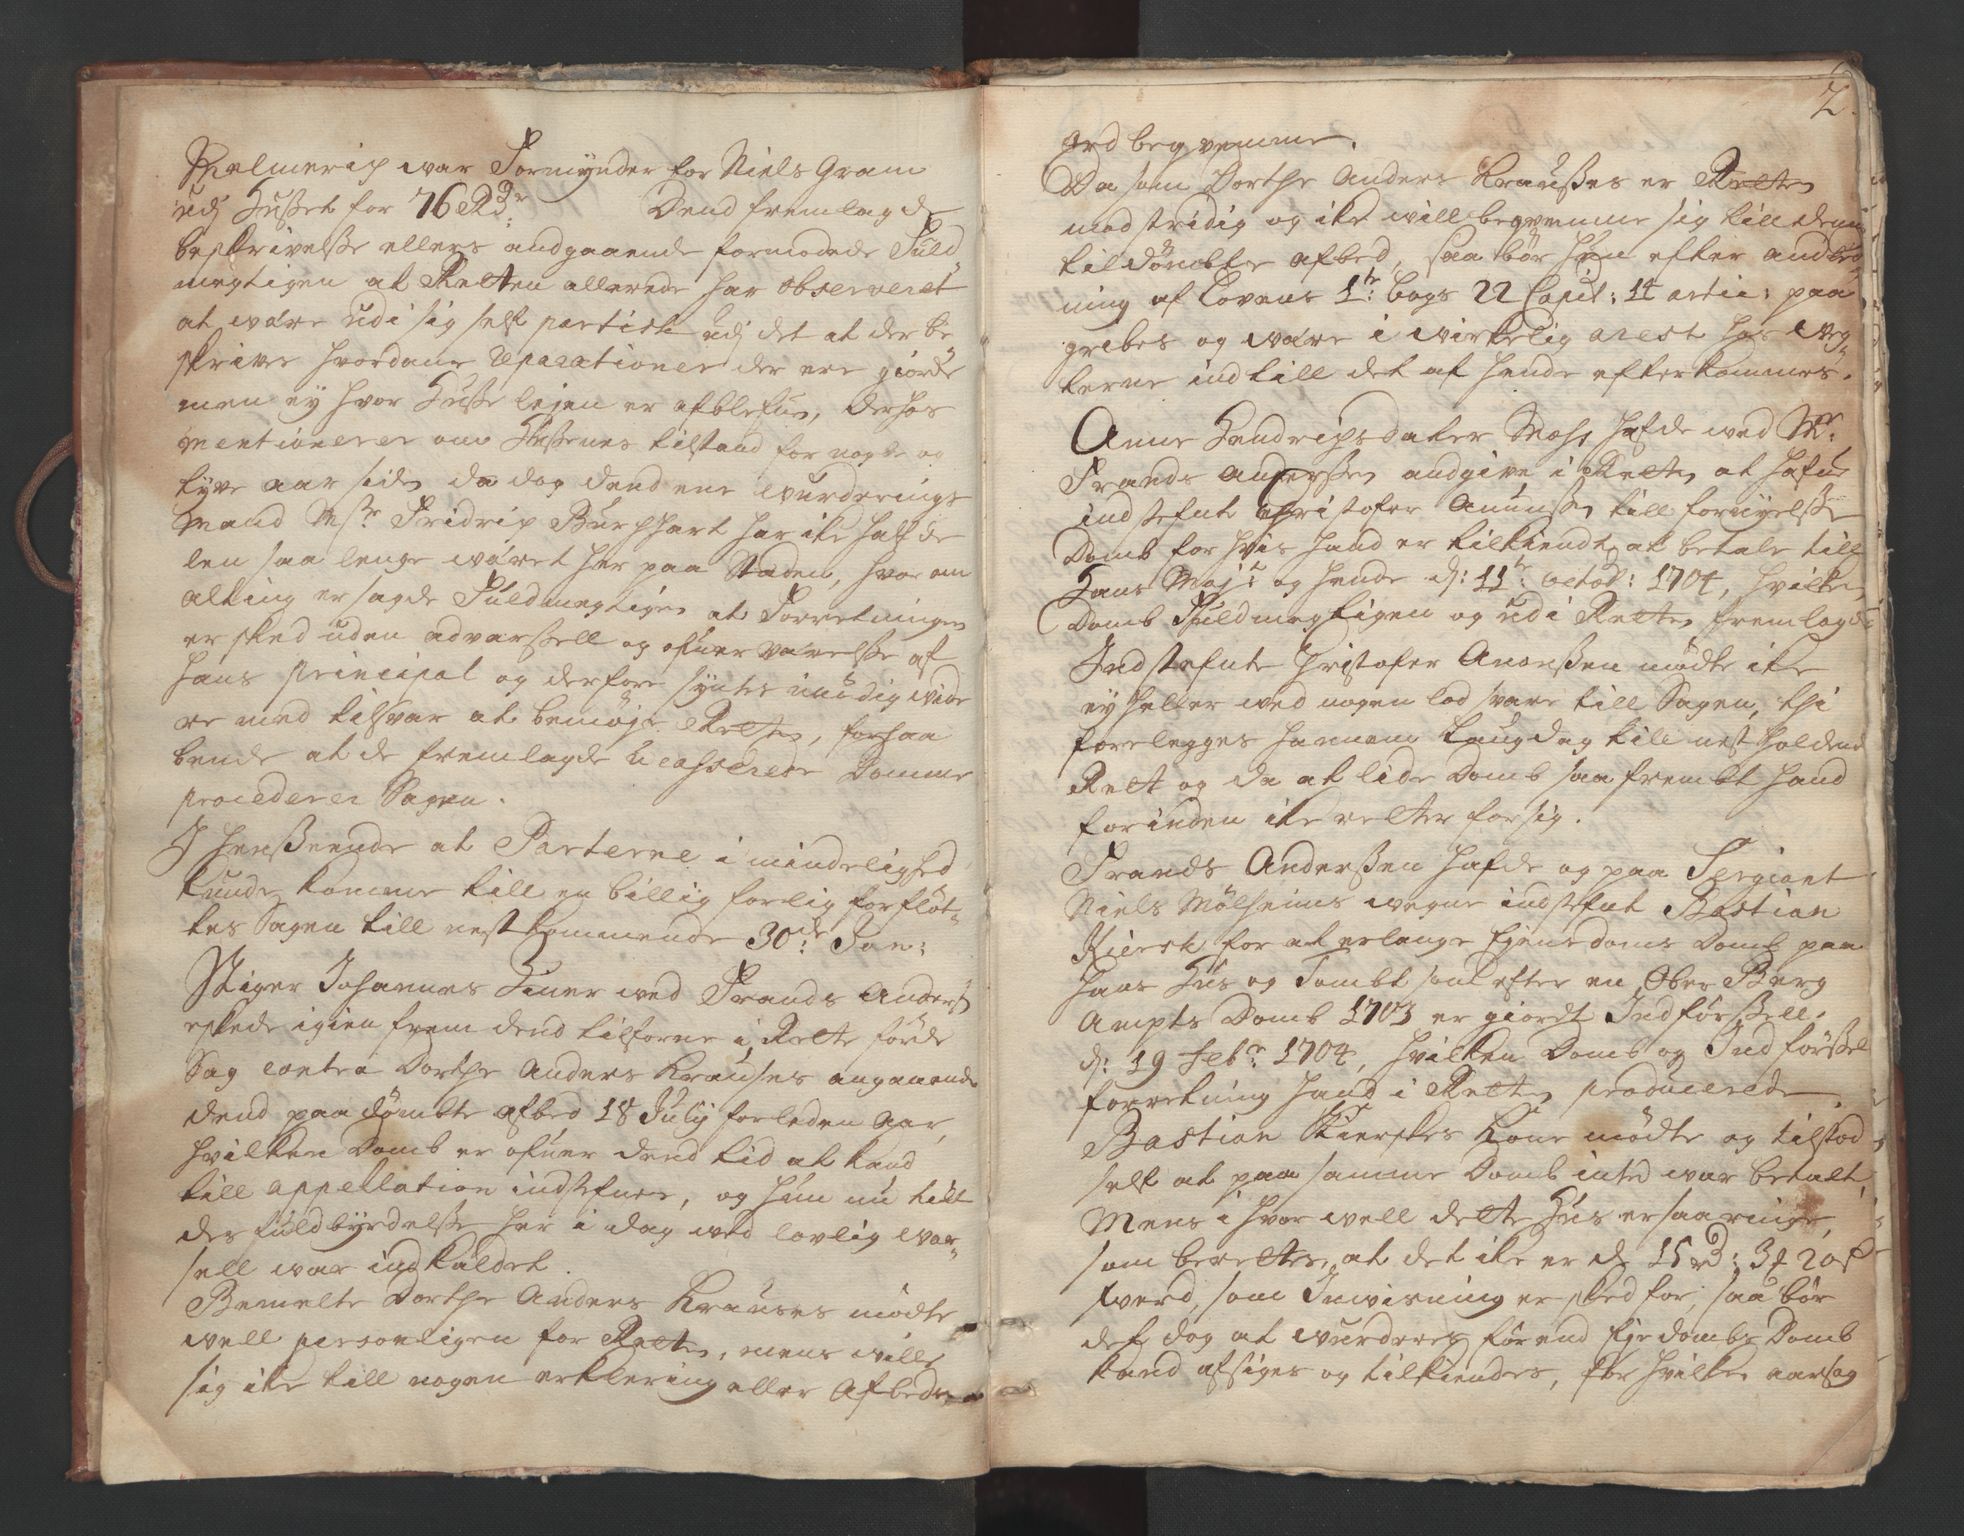 Thelmerip war Formynder for Niels Gram
udj Huset for 76 Rdr. Dend fremlagde
beskrivelsse ellers andgaaende formodede Fuld„
megtigen at Retten allerede har observeret
at wære udi sig self partisk udj det at der be„
skrives hvordane Reparationer der ere giorde
men ey hvor Husse lejen er afblefuen, derhos
mentionerer om Hussenes tilstand for nogle og
tyve aar siden da dog dend ene wurderings
Mand Msr Fridrip Burchhart har ike hafde
len saa lenge wæret her paa Staden, hvor om
alting er sagde Fuldmegtigen at Forretningen
er sked uden advarssell og ofuerværelsse af
Hans principal og derfore syntes unødig wide
re med tilsvar at bemøje Retten, forhaa
bende at de fremlagde Domme
procederer Sagen.
J Henssende at Parterne i mindelighed
kunde komme till en billig forlig forfløt„
tes Sagen till nest kommende 30de Jan:
Stiger Johannes Huer wed Frands Anders:
eskede igien frem dend tilforne i Rette førde
Sag contra Dorthe Anders Krauses angaaende
dend paadømbte afbed 18 July forleden Aar,
hvilken Domb er ofuer dend tid at kand
till appellation indstefnes, og hun nu till
des fuldbyrdelsse her i dag wed lovlig war„
sell war indkaldet.
Bemelte Dorthe Anders Krauses mødte
well personligen for Retten, mens wille
sig ike till nogen erklering eller Afbeds
2.
ord beqvemme.
Da som Dorthe Anders Krausses er Retten
modstridig og ike will beqvemme sig till denn
tildømbte afbed, saa bør hun efter andled„
ning af Lovens 1te bogs 22 Capit: 14 artic: paa
gribes og wære i wirkelig arest hos weg„
terne indtill det af hende efterkommes.
Anne Hendripsdater Moss hafde wed Mr
Frands Anderssen andgive i Retten at hafue
indstefnt Christofer Anunssen till fornyelsse
Domb for hvis hand er tilkiendt at betale till
Hans Majt og hende d: 11te octob: 1704, hvilken
Domb Fuldmegtigen og udi Retten fremlagde
Indstefnte Christofer Anonssen mødte ike
ey heller wed nogen lod svare till Sagen, thi
forelegges hannem Laugdag till nest holdend
Rett og da at lide Domb saafrembt hand
forinden ike retter for sig.
Frands Anderssen hafde og paa Sergiant
Niels Mølheims wegne indstefnt Bastian
Kiersk for at erlange Ejendoms Domb paa
Hans Hus og Tombt som efter en Ober Berg
Ampts Domb 1703 er giordt Indførssell.
d: 19 Febr: 1704, hvilken Domb og Indførssel
forretning hand i Retten producerede.
Bastian Kierskes Kone mødte og tilstod
self at paa samme Domb inted war betalt,
Mens i hvor well dette Hus er saa ringe,
som berettes, at det ike er de 15 rd: 3 20 s
werd, som Inwisning er sked for, saa bør
det dog at wurderes førend Ejedombs Domb
kand afsiges og tilkiendes, for hvilken aarsag